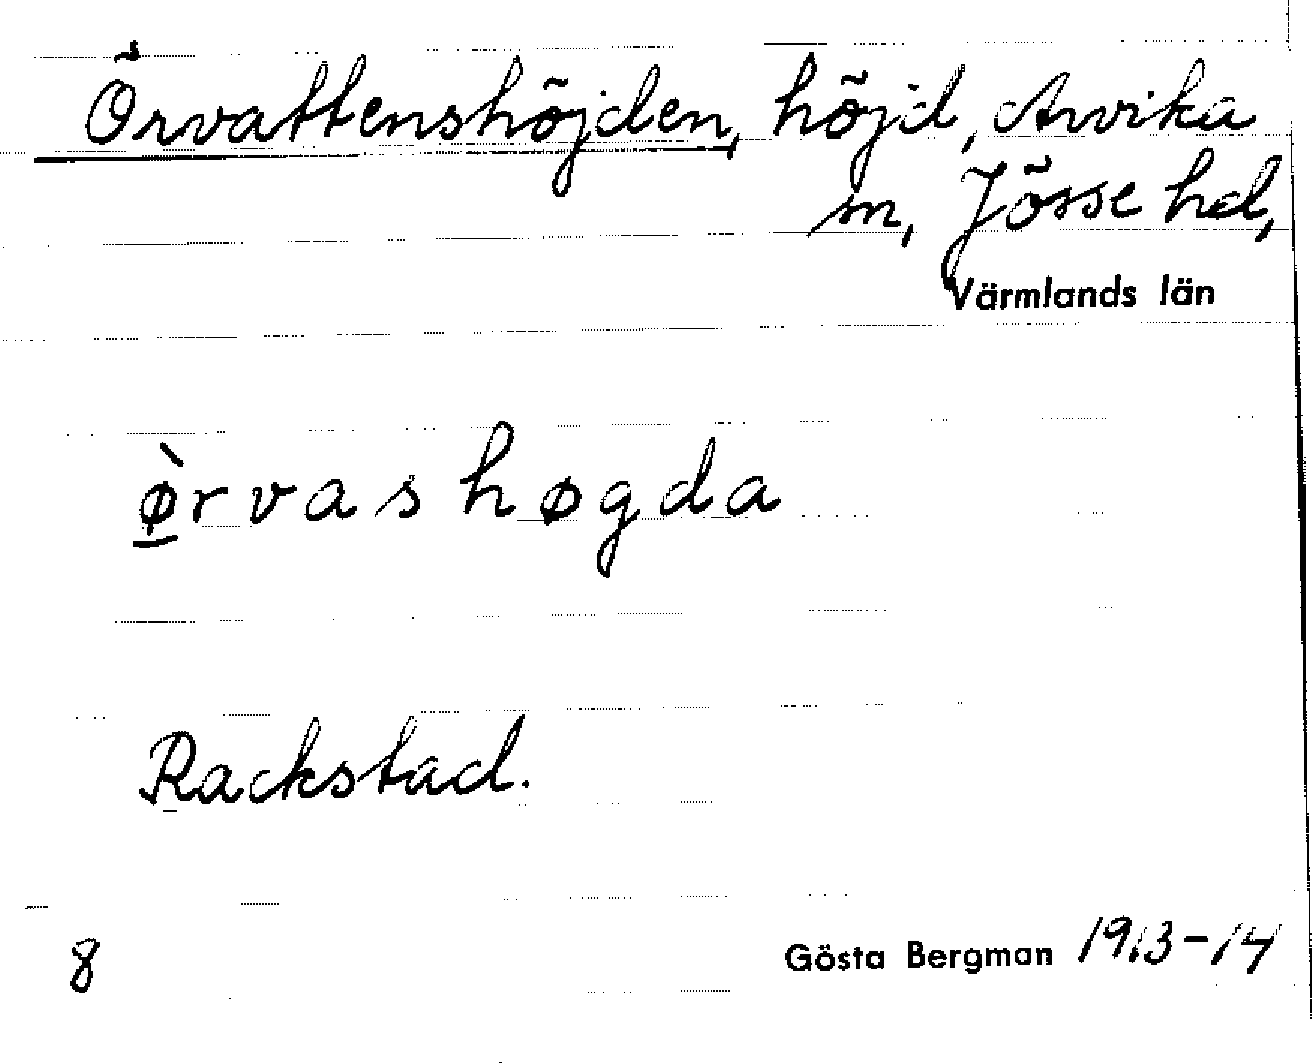 Örvattenshöjden, höjd, Arvika
sn, Jösse hd,
Värmlands län
ø̱̀rvashøgda
Rackstad.
8 Gösta Bergman 1913-14